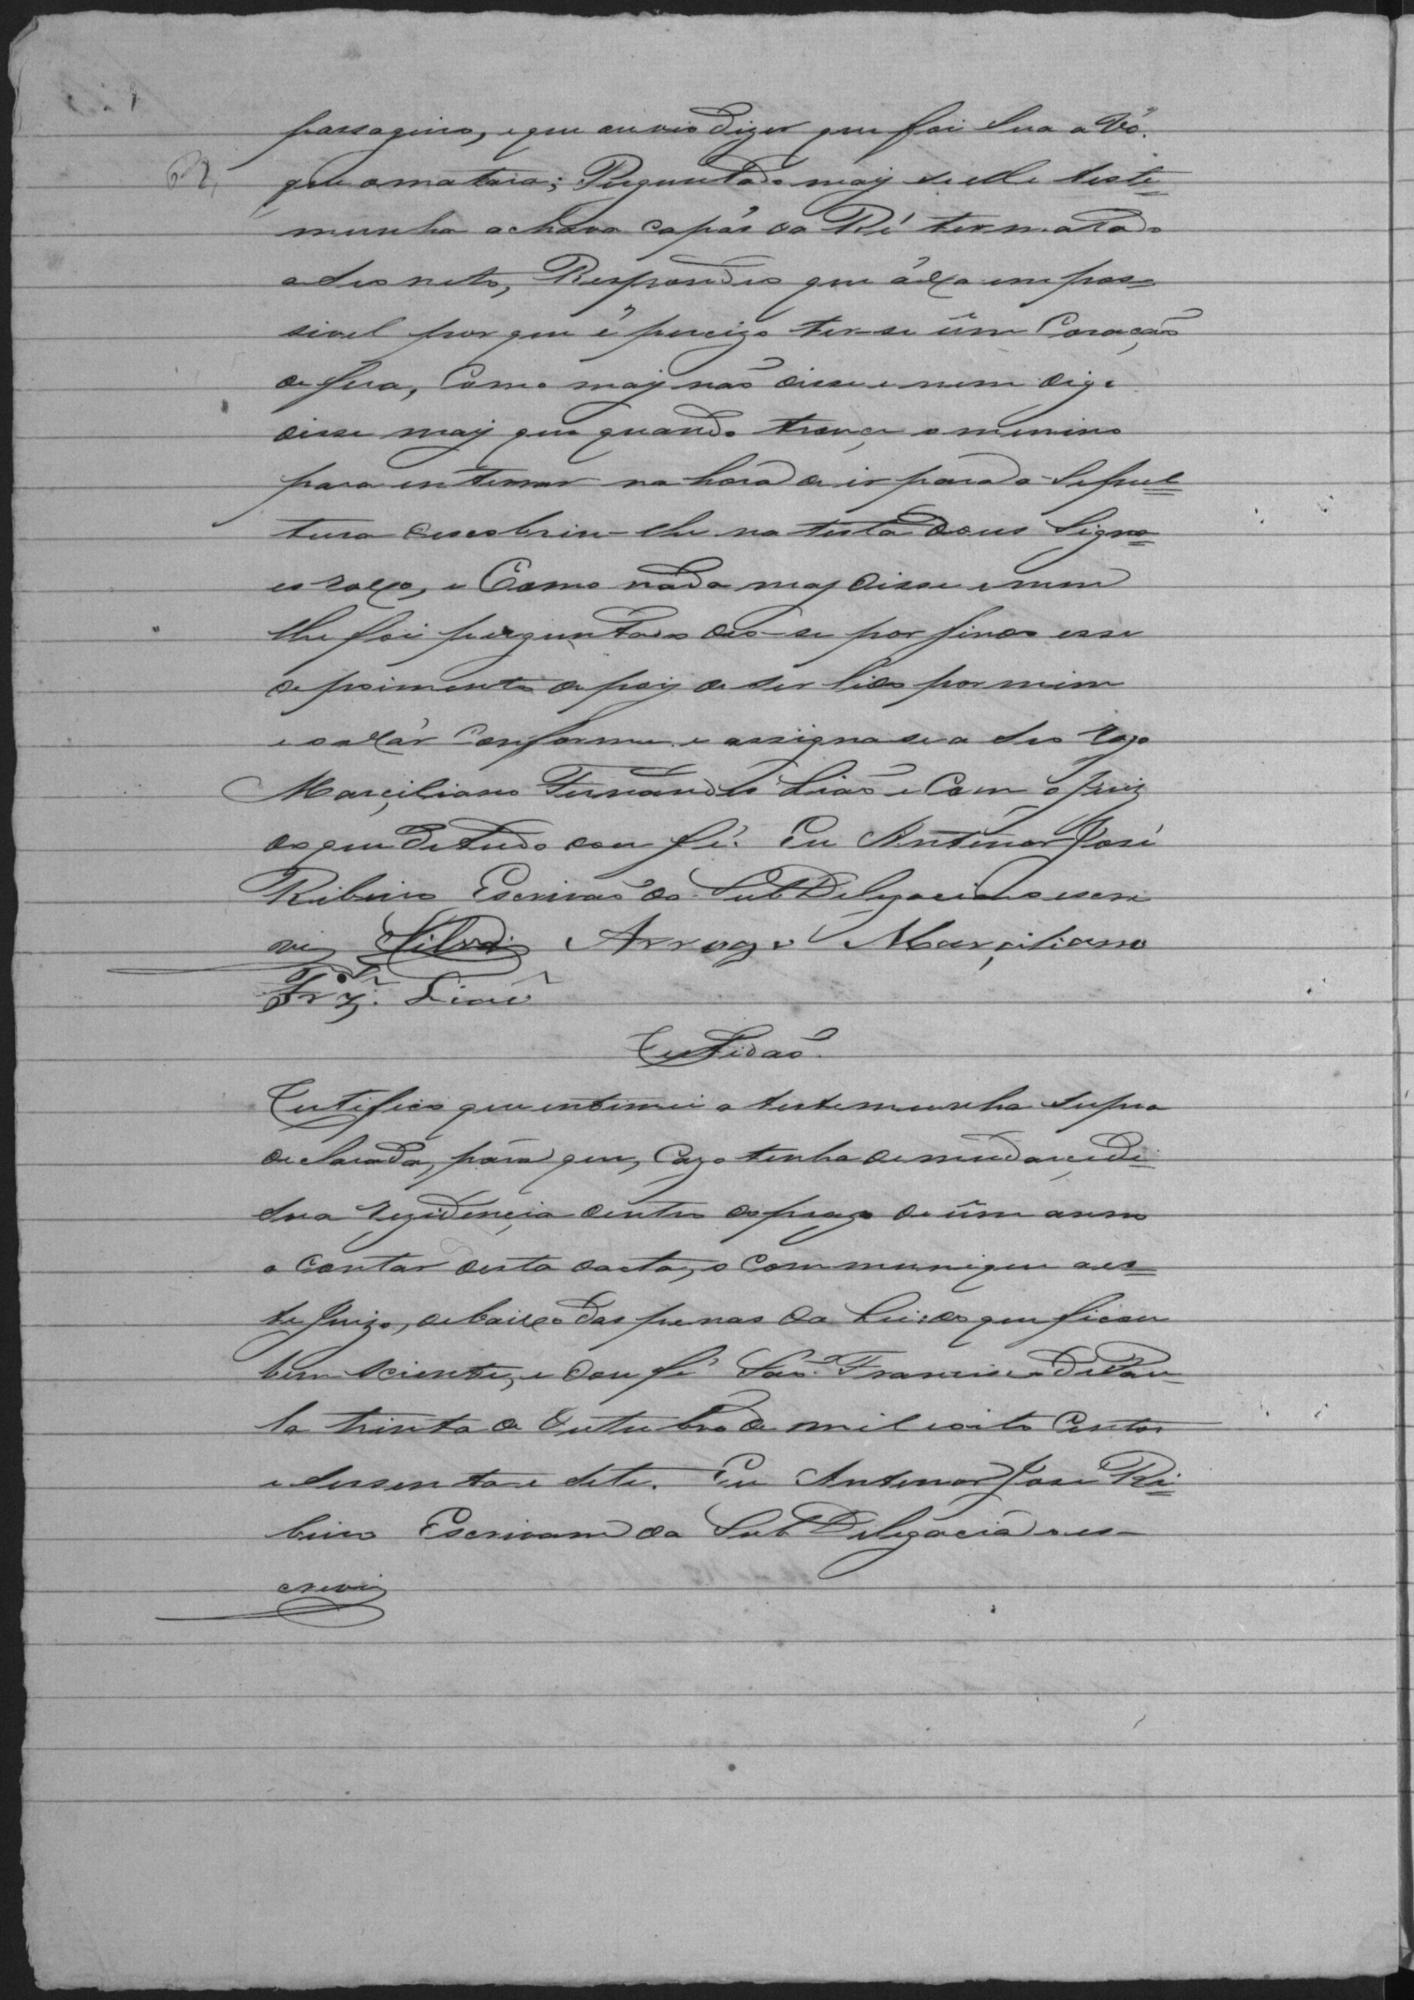 passageiro, e que ouvio dizer que foi sua a Vó.
que amatara; Perguntado maij se elle teste=
munha achava capás da Ré ter matado
a seo neto, Respondeo que áxa empos=
sivel por que é percizo ter-se ûm Coração
de fera, Como maij não disse e nem dig.
disse maij que quando trouce o menino
para enterrar na hora de ir para a Sepul=
tura descobriu-lhe na testa dous Signo=
es roxo, e Como nada maj disse e nem
lhe foi perguntado deo-se por findo esse
depoimento depoij de ser lido por mim
e oaxár Conforme e assignase a seo rogo
Marçiliano Fernandes Lião e Com o Juiz
do que de tudo dou fé. Eu Antenor José
Ribeiro Escrivão da SubDelegacia o escre
vi Silva Arrogo Marçiliano
Frz. Lião
Certidão.
Certifico que entimei a testemunha supra
declarada, para que, Cazo tenha de mudarçe di=
sua rezidençia dentro do prazo de ûm anno
a contar desta dacta, o Communique aes=
te Juizo, debaixo das penas da Lei: do que ficou
bem sciente, e dou fé São Francisco de Pau=
la trinta de Outubro de mil e oito Centos
e sessenta e sete. Eu Antenor Jose Ri=
beiro Escrivam da SubDelegacia o es-
crevi